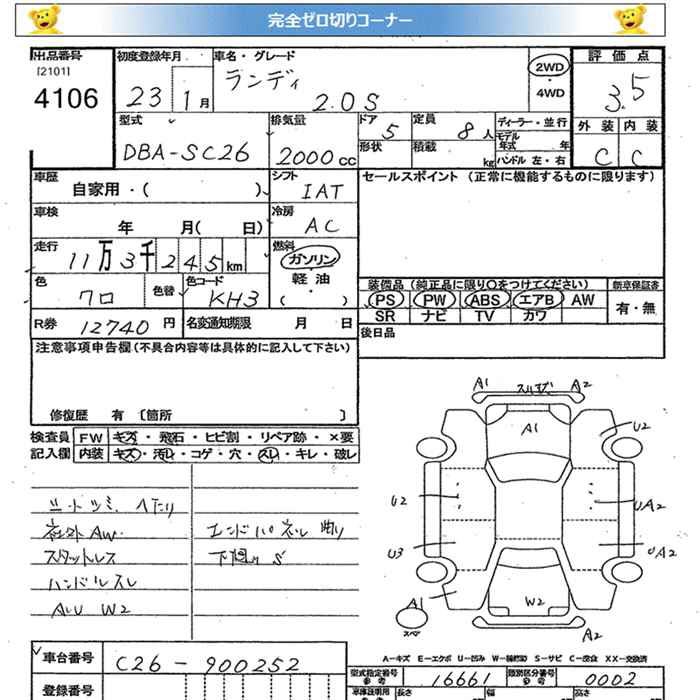 完全ゼロ切りコーナー
出品番号 初度登録年月 車名・グレード 評価点
[2101]
4106
23 1月 ランディ 2.0S
2WD
・
4WD
3.5
外装 内装
C C
型式 排気量 ドア 定員 ディーラー・並行
DBA-SC26 2000cc 5 8人
モデル年式 年
形状 積載 kg ハンドル 左・右
車歴 シフト セールスポイント (正常に機能するものに限ります)
自家用・( ) IAT
車検 冷房
年 月( 日) AC
走行 燃料
11万3千245km ガソリン
・
軽油
( )
色 色替 色コード
クロ KH3
装備品 (純正品に限り○をつけてください) 新車保証書
PS PW ABS エアB AW 有・無
SR ナビ TV カワ
R券 12740円 名変通知期限 月 日 後日品
注意事項申告欄 (不具合内容等は具体的に記入して下さい)
修復歴 有 〔箇所 〕
検査員 FW キズ・飛石・ヒビ割・リペア跡・×要
記入欄 内装 キズ・汚レ・コゲ・穴・スレ・キレ・破レ
シートツミ ヘタリ
社外AW エンドパネル曲り
スタットレス 下廻りS
ハンドルスレ
AUW2
A1 スリキズ A2
A1
U2
U2
UA2
U3
UA2
A1
W2
A2
スペア
A-キズ E-エクボ U-凹み W-補修跡 S-サビ C-腐食 XX-交換済
車台番号 C26-900252
型式指定番号 参考 16661 類別区分番号 参考 0002
登録番号
車庫証明用 長さ 幅 高さ